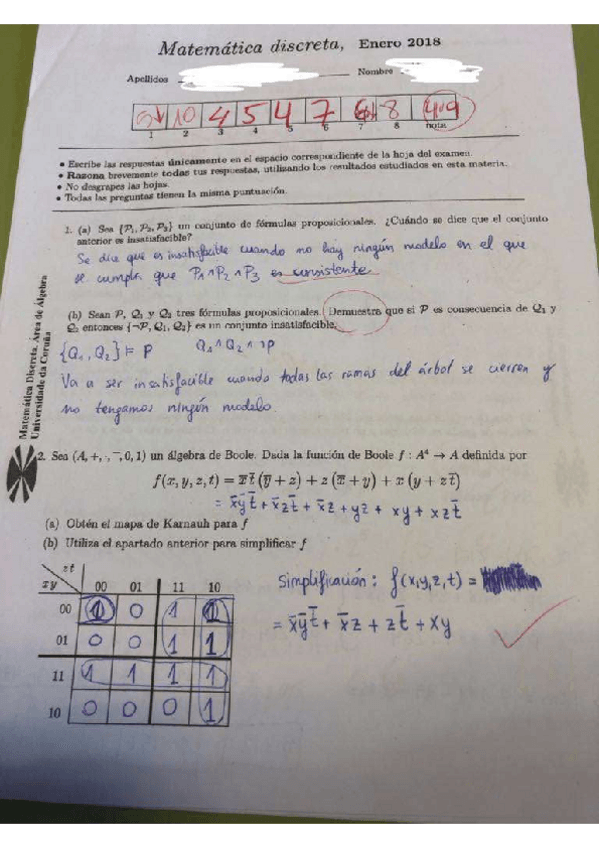 Matemática discreta, Enero 2018
Apellidos Nombre
10 4 5 4 7 8 4,9
1 2 3 4 5 6 7 8 nota
• Escribe las respuestas únicamente en el espacio correspondiente de la hoja del examen.
• Razona brevemente todas tus respuestas, utilizando los resultados estudiados en esta materia.
• No desgrapes las hojas.
• Todas las preguntas tienen la misma puntuación.
1. (a) Sea {P₁, P₂, P₃} un conjunto de fórmulas proposicionales. ¿Cuándo se dice que el conjunto
anterior es insatisfacible?
Se dice que es insatisfacible cuando no hay ningún modelo en el que
se cumpla que P₁∧P₂∧P₃ es consistente
(b) Sean P, Q₁ y Q₂ tres fórmulas proposicionales. Demuestra que si P es consecuencia de Q₁ y
Q₂ entonces {¬P, Q₁, Q₂} es un conjunto insatisfacible.
{Q₁, Q₂} ⊨ P Q₁∧Q₂∧¬P
Va a ser insatisfacible cuando todas las ramas del árbol se cierren y
no tengamos ningún modelo.
Matemática Discreta. Área de Álgebra
Universidade da Coruña
2. Sea (A, +, ·, ‾, 0, 1) un álgebra de Boole. Dada la función de Boole f : A⁴ → A definida por
f(x, y, z, t) = x̄ t̄ (ȳ + z) + z (x̄ + y) + x (y + z t̄)
= x̄ȳt̄ + x̄zt̄ + x̄z + yz + xy + xzt̄
(a) Obtén el mapa de Karnauh para f
(b) Utiliza el apartado anterior para simplificar f
zt
xy 00 01 11 10
00 1 0 1 1
01 0 0 1 1
11 1 1 1 1
10 0 0 0 1
Simplificación: f(x,y,z,t) =
= x̄ȳt̄ + x̄z + zt̄ + xy